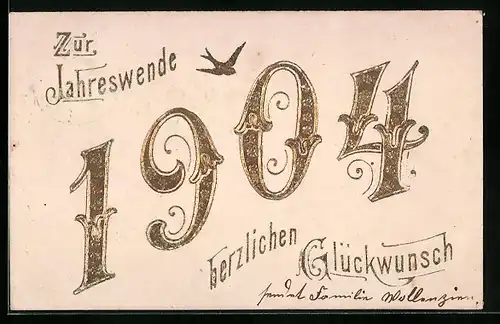 Zur
Jahreswende
1904
herzlichen
Glückwunsch
sendet Familie Wollenzien.